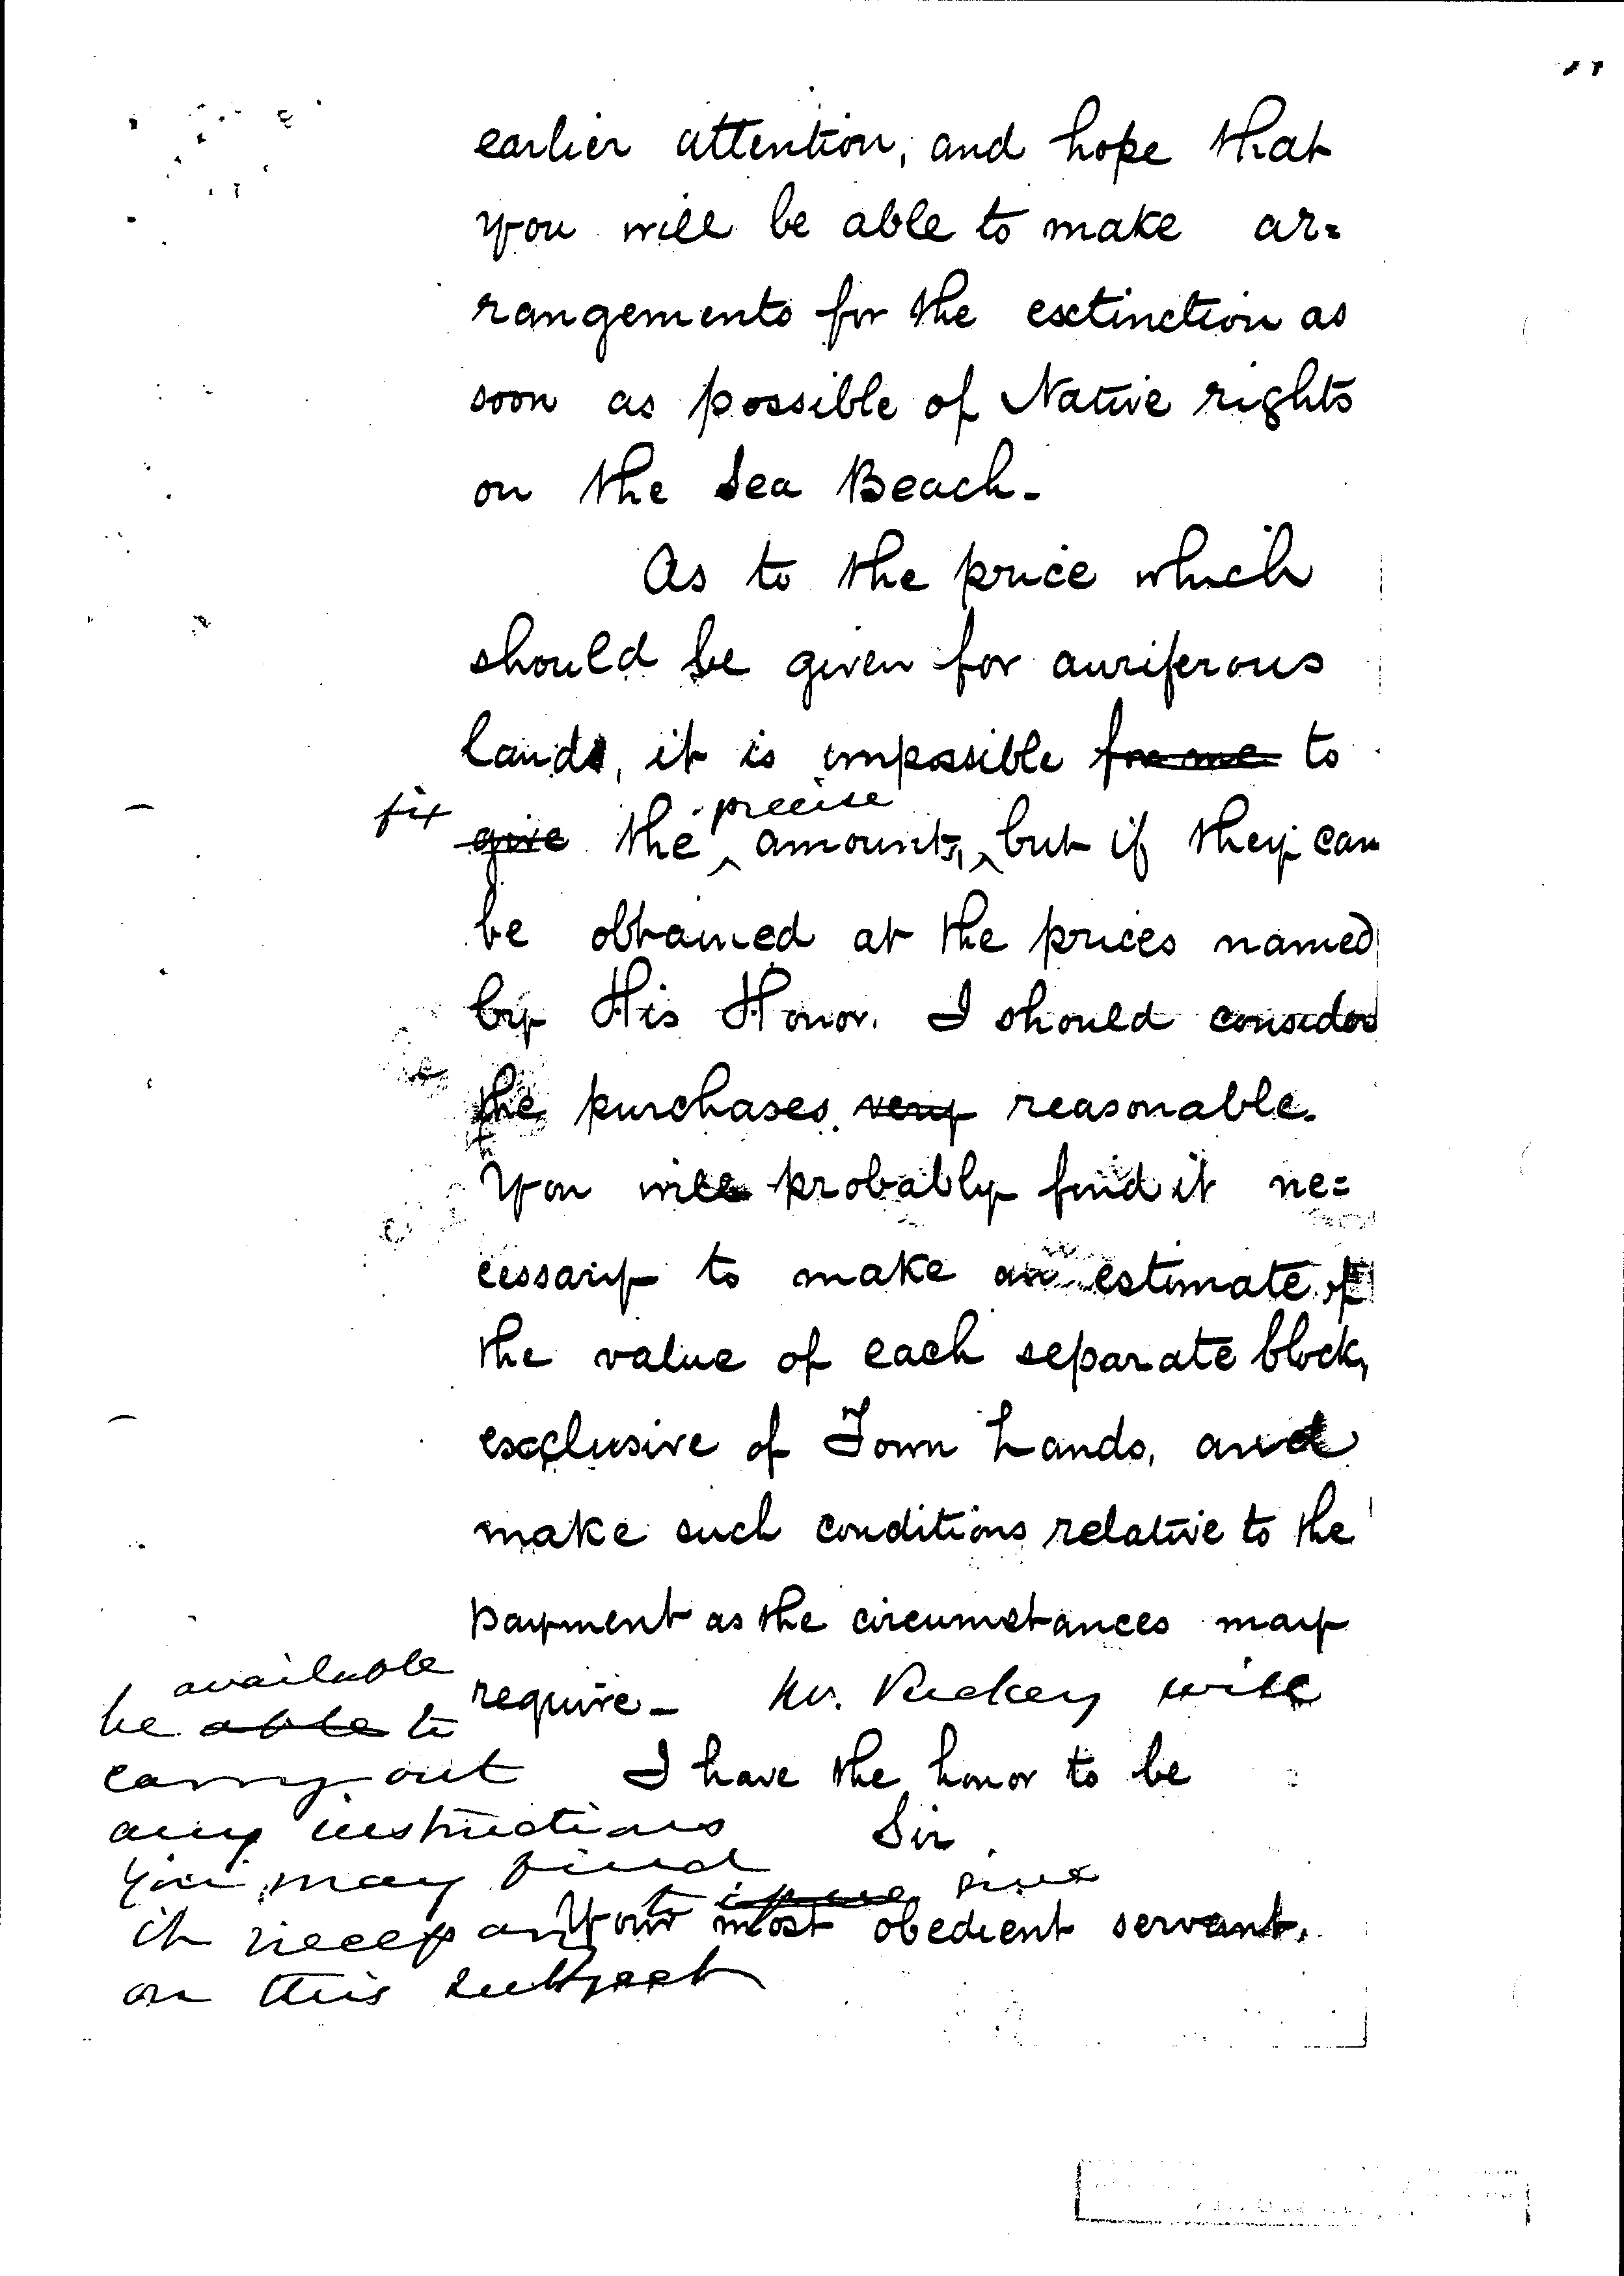 earlier attention, and hope that
you will be able to make ar=
rangements for the extinction as
soon as possible of Native rights
on the Sea Beach.
As to the price which
should be given for auriferous
lands, it is impossible for me to
fix give the precise amounts, but if they can
be obtained at the prices named
by His Honor. I should consider
the purchases very reasonable.
You will probably find it ne=
cessary to make an estimate of
the value of each separate block,
exclusive of Town Lands, and
make such conditions relative to the
payment as the circumstances may
require_ Mr. Puckey will
be able available to
carry out
any instructions
you may find
it necessary to issue give
on this subject
I have the honor to be
Sir
Your most obedient servant.